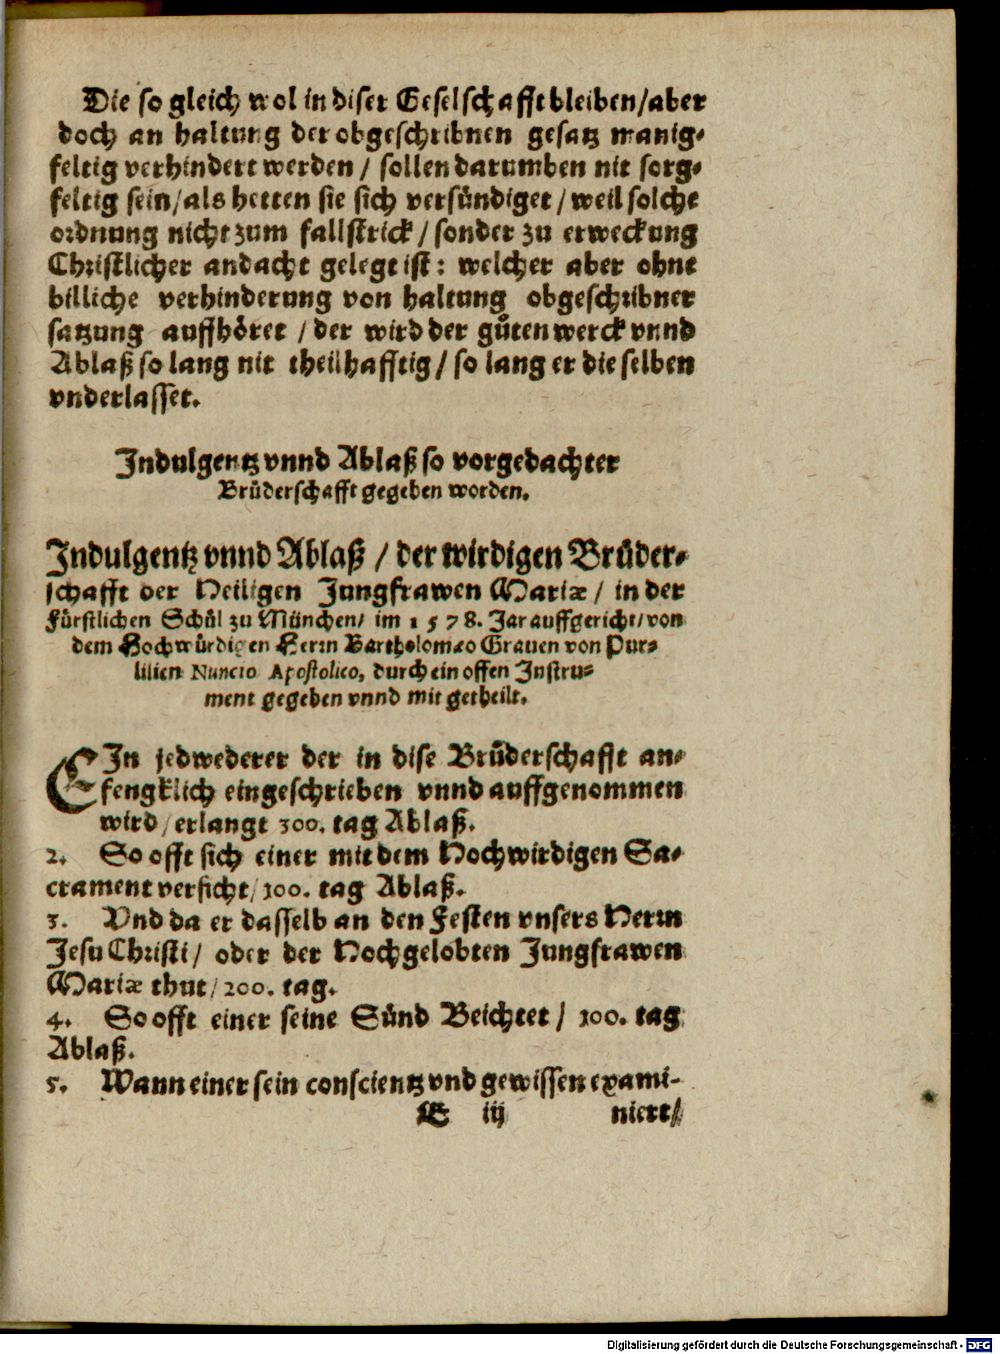 Die so gleich wol in diser Geselschafft bleiben/aber
doch an haltung der obgeschribnen gesatz manig-
feltig verhindert werden / sollen darumben nit sorg-
feltig sein/als hetten sie sich versündiget / weil solche
ordnung nicht zum fallstrick / sonder zu erweckung
Christlicher andacht gelegt ist: welcher aber ohne
billiche verhinderung von haltung obgeschribner
satzung auffhöret / der wird der gůten werck vnnd
Ablaß so lang nit theilhafftig / so lang er die selben
vnderlasset.
Indulgentz vnnd Ablaß so vorgedachter
Brůderschafft gegeben worden.
Indulgentz vnnd Ablaß / der wirdigen Brůder-
schafft der Heiligen Jungfrawen Mariæ / in der
Fürstlichen Schůl zu München/ im 1578. Jar auffgericht/von
dem Hochwürdigen Herrn Bartholomæo Grauen von Pur-
lilien Nuncio Apostolico, durch ein offen Instru-
ment gegeben vnnd mit getheilt.
EIn jedwederer der in dise Brůderschafft an-
fengklich eingeschrieben vnnd auffgenommen
wird/erlangt 300. tag Ablaß.
2. So offt sich einer mit dem Hochwirdigen Sa-
crament versicht/100. tag Ablaß.
3. Vnd da er dasselb an den Festen vnsers Herrn
Jesu Christi / oder der Hochgelobten Jungfrawen
Mariæ thut/200. tag.
4. So offt einer seine Sünd Beichtet / 100. tag
Ablaß.
5. Wann einer sein conscientz vnd gewissen exami-
B iij niert/
Digitalisierung gefördert durch die Deutsche Forschungsgemeinschaft - DFG